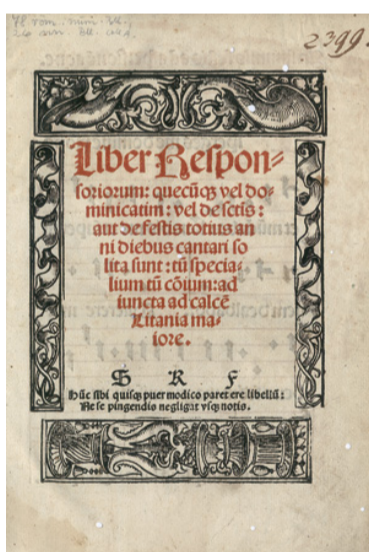 2399.
Liber Respon⸗
soriorum: quecũqȝ vel do⸗
minicatim: vel de sctis:
aut de festis totius an
ni diebus cantari so
lita sunt: tũ specia⸗
lium tũ cõium: ad
iuncta ad calcẽ
Litania ma⸗
iore.
S R F
Hũc sibi quisqȝ puer modico paret ere libellũ:
Ne se pingendis negligat vsqȝ notis.